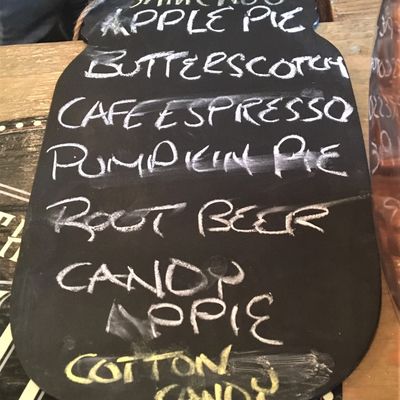 APPLE PIE
BUTTERSCOTCH
CAFE ESPRESSO
PUMPKIN PIE
ROOT BEER
CANDY
APPLE
COTTON
CANDY